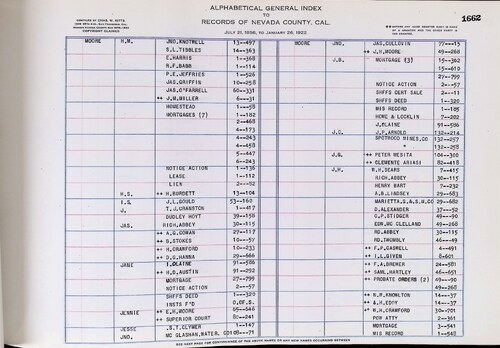 ALPHABETICAL GENERAL INDEX
TO
RECORDS OF NEVADA COUNTY, CAL.
JULY 21, 1856, TO JANUARY 26, 1922
1662
COPYRIGHT CLAIMED
MOORE H,M, JNO,KNOTWELL 13--497
S.L.TIBBLES 14--363
E,HARRIS 1--368
R.F.DABB 1--114
P.E,JEFFRIES 1--526
JAS,GRIFFIN 10--258
JAS,O'FARRELL 60--331
++ J,M,MILLER 6--31
HOMESTEAD 1--58
MORTGAGES (7) 1--182
2--468
4--173
4--243
4--458
5--447
6--243
NOTICE ACTION 1--136
LEASE 1--112
LIEN 2--82
H,S. ++ H,BURDETT 13--104
I,S, J,L,GOULD 53--160
J. T,J,CRANSTON 1--417
DUDLEY HOYT 39--158
JAS, RICH,ABBEY 30--115
++ A,G,COWAN 27--117
++ D,STOKES 10--57
++ H,CRAWFORD 10--233
++ D,G,HANNA 29--666
JANE I,OLAINE 91--586
++ H,D,AUSTIN 91--252
MORTGAGE 27--799
NOTICE ACTION 2--57
SHFFS DEED 1--320
INSTS F'D D,OF,S.
JENNIE ++ E,H,MOORE 65--646
++ SUPERIOR COURT 82--248
JESSE .S,T,CLYMER 1--147
JNO, MC GLASHAN,WATER, CO 108--71
MOORE JNO, JAS,CULLOVIN 77--15
++ J,H,MOORE 49--268
J,B, MORTGAGE (3) 15--362
15--610
27--799
NOTICE ACTION 2--57
SHFFS CERT SALE 2--11
SHFFS DEED 1--320
MID RECORD 1--105
HOME & LOCKLIN 7--202
J,BLAINE 91--586
J,C, J,P,ARNOLD 132--214
SPOTWOOD MINES,CO 132--257
" 132--258
J,G, ++ PETER BESITA 104--300
++ CLEMENTE ARIASI 82--418
J,H, W,H,SEARS 7--415
RICH,ABBEY 30--115
HENRY BART 7--232
A,B,LINDSEY 29--683
MARIETTA,G,&,S,M,CO 29--682
D,ALEXANDER 37--52
D,P,STIDGER 49--90
EDW,MC CLELLAND 49--268
RD,ABBEY 30--115
RD,TWOMBLY 46--49
++ F,P,GASKELL 4--491
++ I,L,GIVEN 8--601
++ F,A,BREKER 24--581
++ SAML,HARTLEY 46--651
++ PROBATE ORDERS (2) 49--90
49--268
++ N,W,KNOWLTON 14--37
++ A,H,EDDY 14--37
++ W,H,CRAWFORD 30--701
POR ATTY 2--551
MORTGAGE 3--541
MID RECORD 1--548